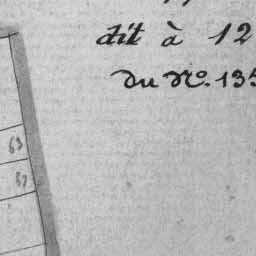 dit à 12
du No. 135
63